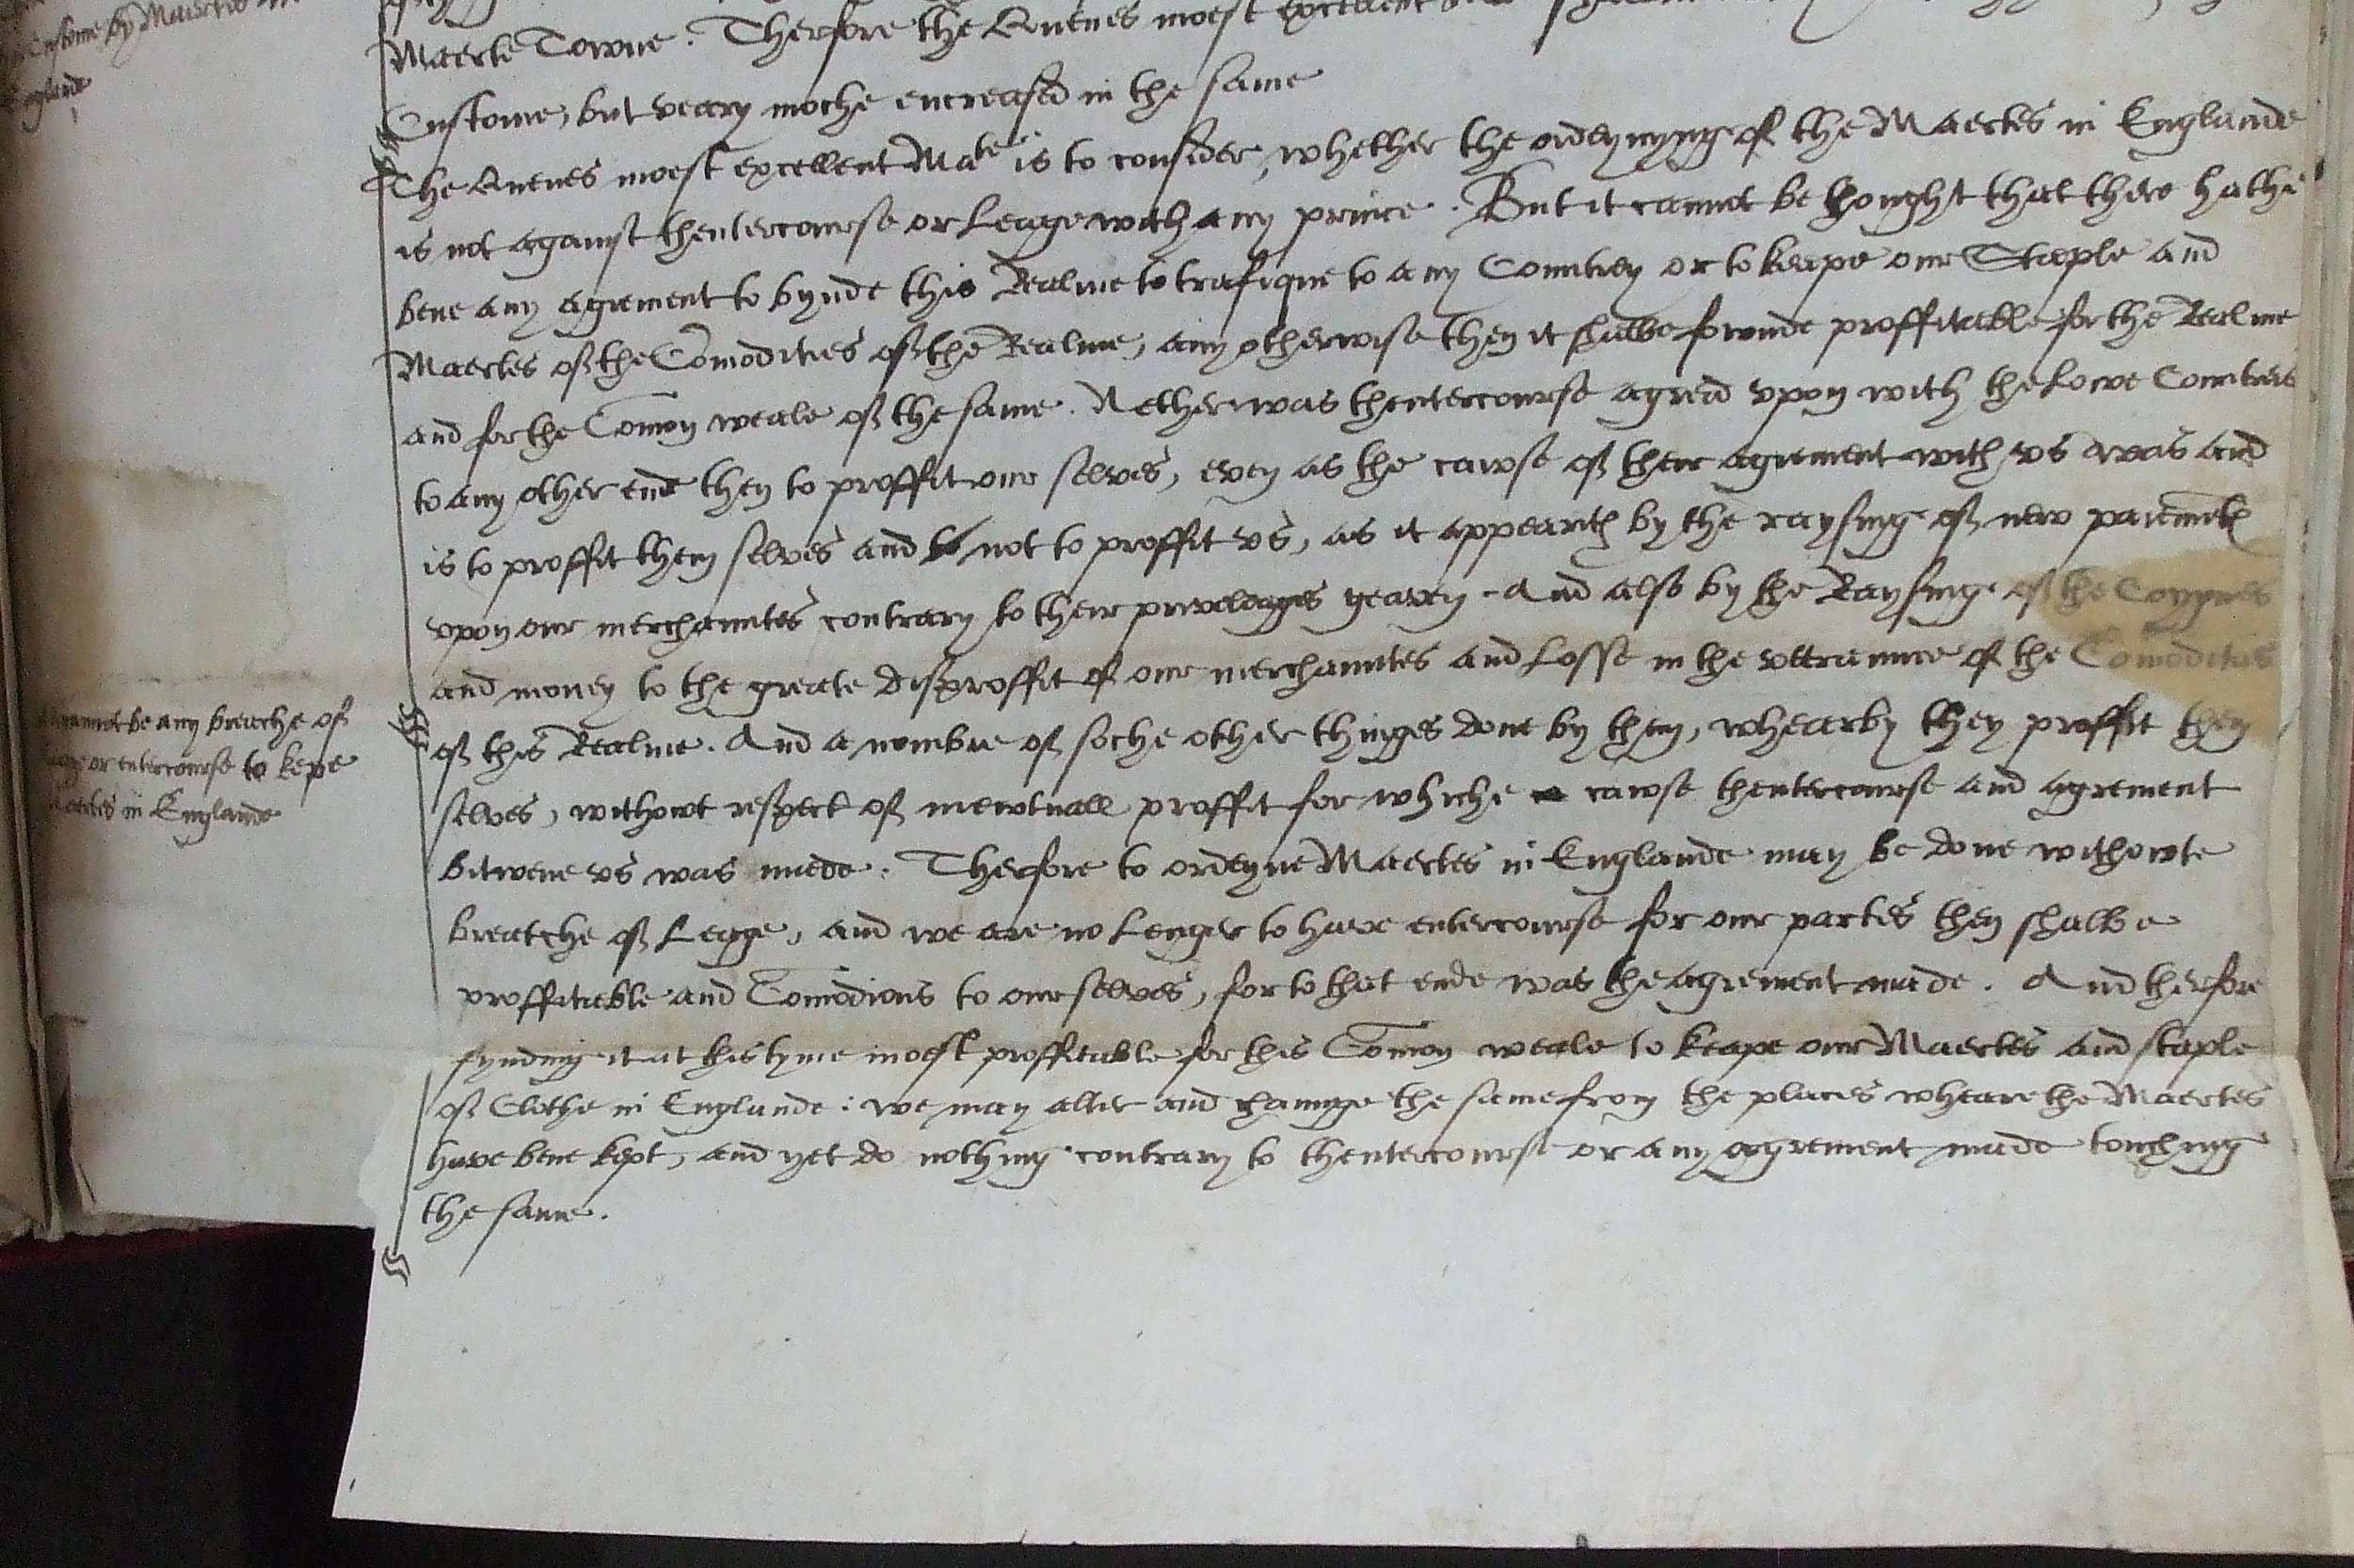 Custome by Maertes in
Englande
Maerte Towne. Therfore the Quenes moest excellent
Custome, but veary moche encreased in the same
The Quenes moest excellent Matie is to consider, whether the ordeynynge of the Maertes in Englande
is not against thentercourse or Leage with any prince. But it cannot be thought that there hathe
bene any agrement to bynde this Realme to trafique to any Countrey or to keape our Staple and
Maertes of the Comodities of the Realme, any otherwise then it shalbe founde proffitable for the Realme
and for the Comon weale of the same. Nether was thentercourse agreed vpon with the Lowe Countreis
to any other ende then to proffit our selves, even as the cawse of their agrement with vs was and
is to proffit them selves and not to proffit vs, as it appearith by the raysing of new paiements
vpon our merchauntes contrary to their privelages geaven. And also by the Raysinge of the Coygnes
and money to the greate disproffit of our merchauntes and Losse in the vttraunce of the Comodities
of this Realme. And a nombre of soche other thinges done by them, whearby they proffit them
selves, without respect of mewtuall proffit for whiche cawse thentercourse and agrement
bitwene vs was made. Therfore to ordeyne Maertes in Englande may be done withowte
breatche of Leage, and we are no Lenger to have entercourse for our partes then shalbe
proffitable and Comodious to our selves, for to that ende was the agrement made. And therfore
fynding it at this tyme moest proffitable for this Comon weale to keape our Maertes and staple
of Clothe in Englande: we may alter and chainge the same from the places wheare the Maertes
have bene kept, and yet do nothing contrary to thentercourse or any agrement made touching
the same.
cannot be any breache of
or entercourse to kepe
Maertes in Englande